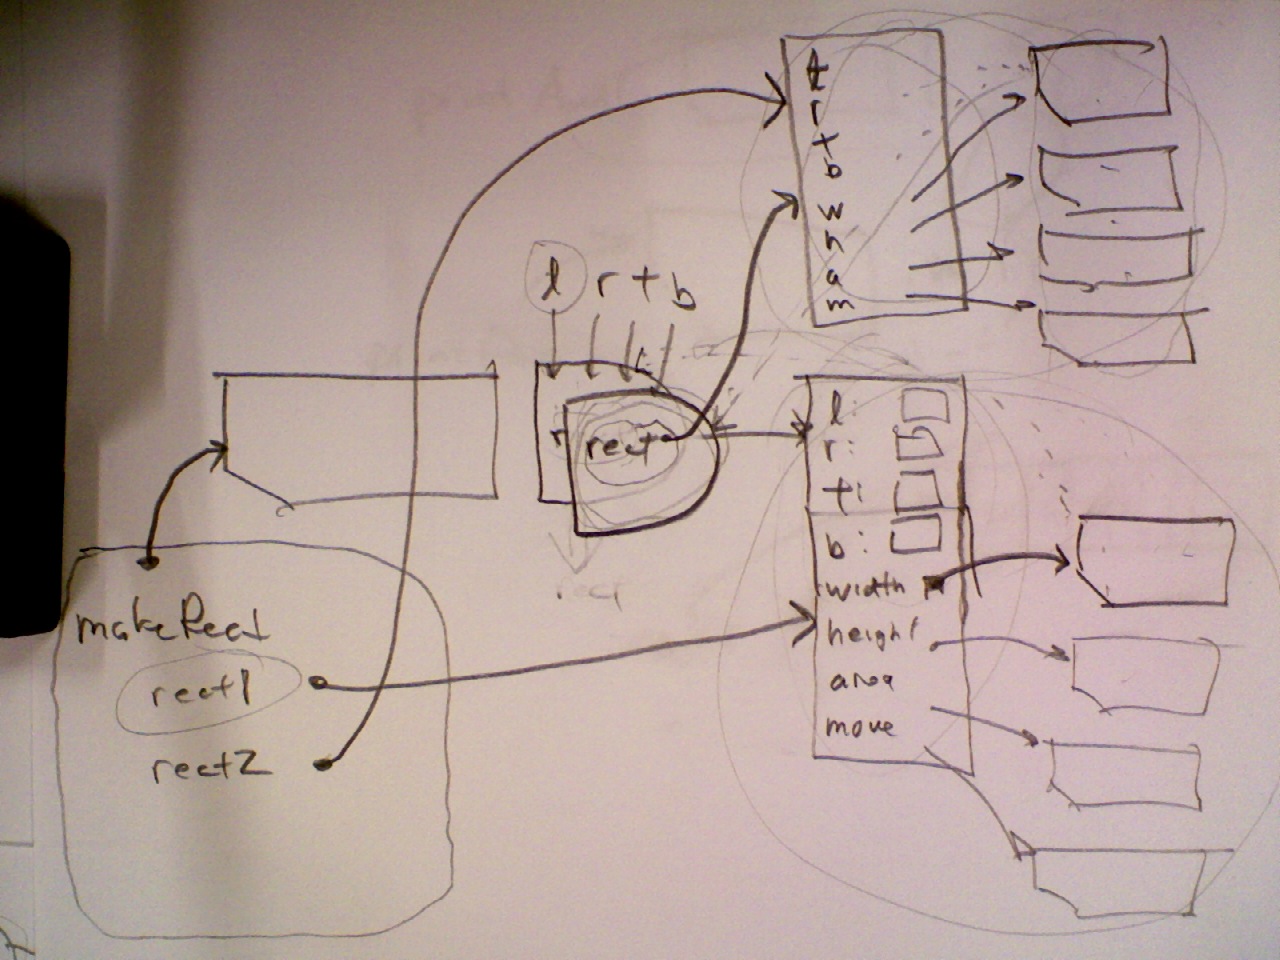 l
r
t
b
w
h
a
m
l r t b
rect
l:
r:
t:
b:
width
height
area
move
makeRect
rect1
rect2